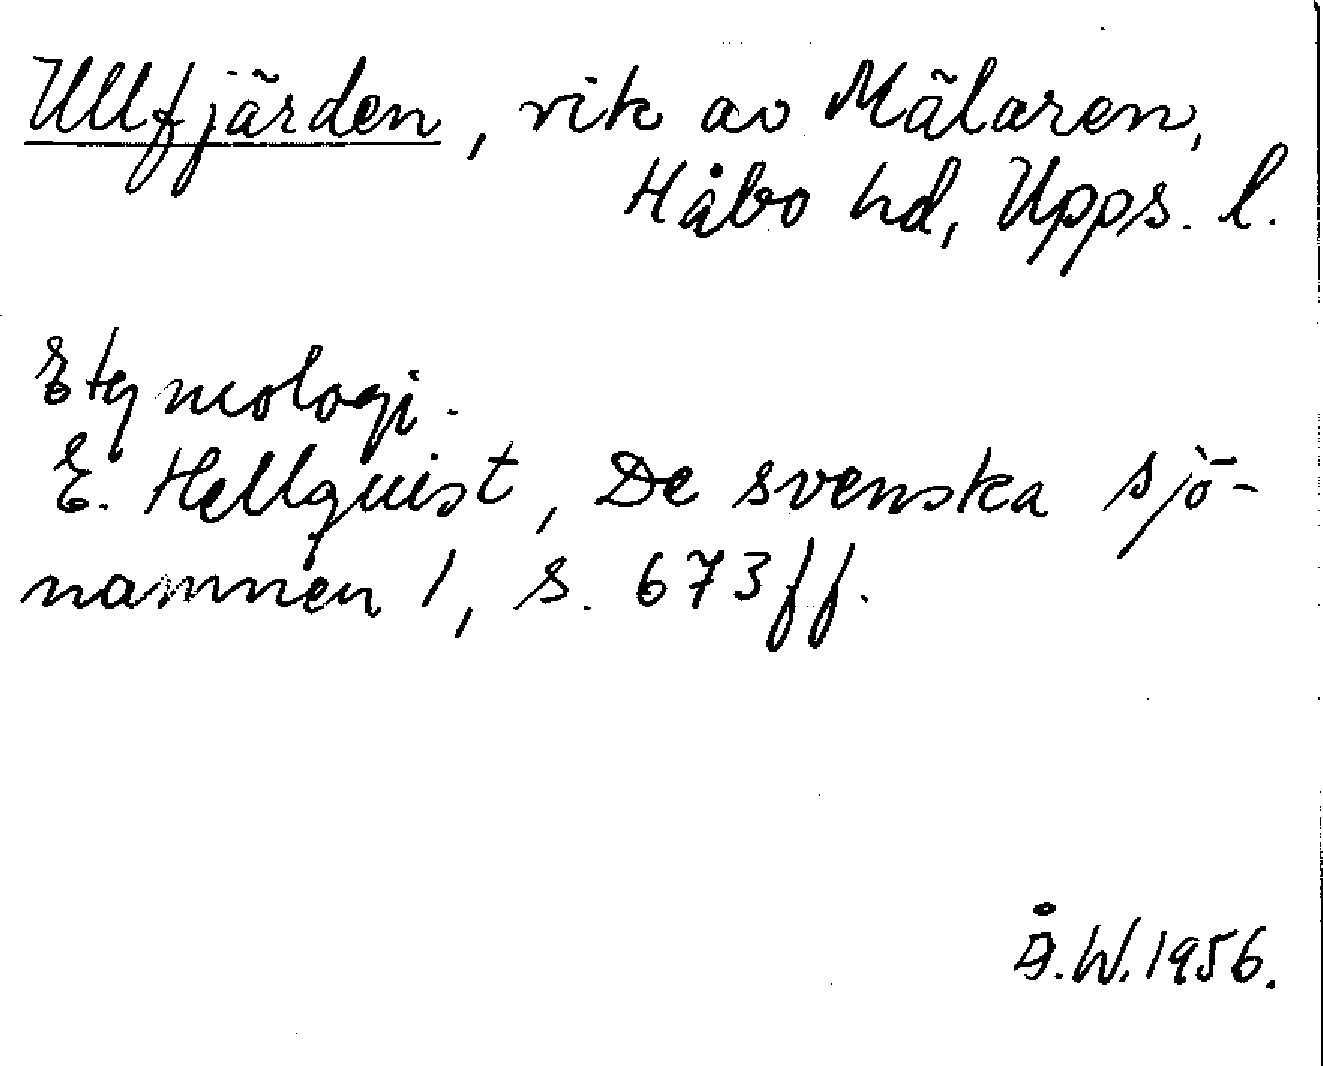 Ullfjärden, vik av Mälaren,
Håbo hd, Upps. l.
Etymologi.
E. Hellquist, De svenska sjö-
namnen 1, s. 673ff.
Å.W.1956.